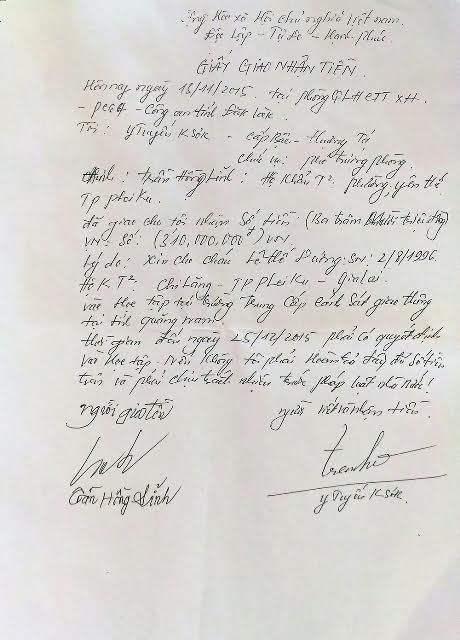 Cộng Hòa xã Hội chủ nghĩa Việt nam.
Độc Lập - Tự do - Hạnh phúc
GIẤY GIAO NHẬN TIỀN
Hôm nay ngày 13/11/2015. tại phòng QLHC TTXH.
- PC64 - Công an tỉnh Đăk Lăk.
Tôi: Y Tuyến KSơk - cấp Bậc - thượng Tá
chức vụ: phó trưởng phòng.
Anh: Trần Hồng Lĩnh: Hộ Khẩu T²: phường, yên thế
TP pleiku.
đã giao cho tôi nhận số tiền: (Ba trăm triệu đồng)
VN: Số: (310,000,000đ) VN.
Lý do: Xin cho cháu Lê thế Dương: SN: 2/8/1996.
Hộ KT²: Chi Lăng - TP pleiku - gialai.
vào Học tập tại trường Trung Cấp Cảnh Sát giao thông
tại tỉnh quảng nam.
thời gian đến ngày 25/12/2015 phải có quyết định
vào Học tập. Nếu không tôi phải hoàn trả đầy đủ số tiền
trên và phải chịu trách nhiệm trước pháp luật nhà nước!
người giao tiền
người viết và nhận tiền.
Trần Hồng Lĩnh
Y Tuyến KSơk.